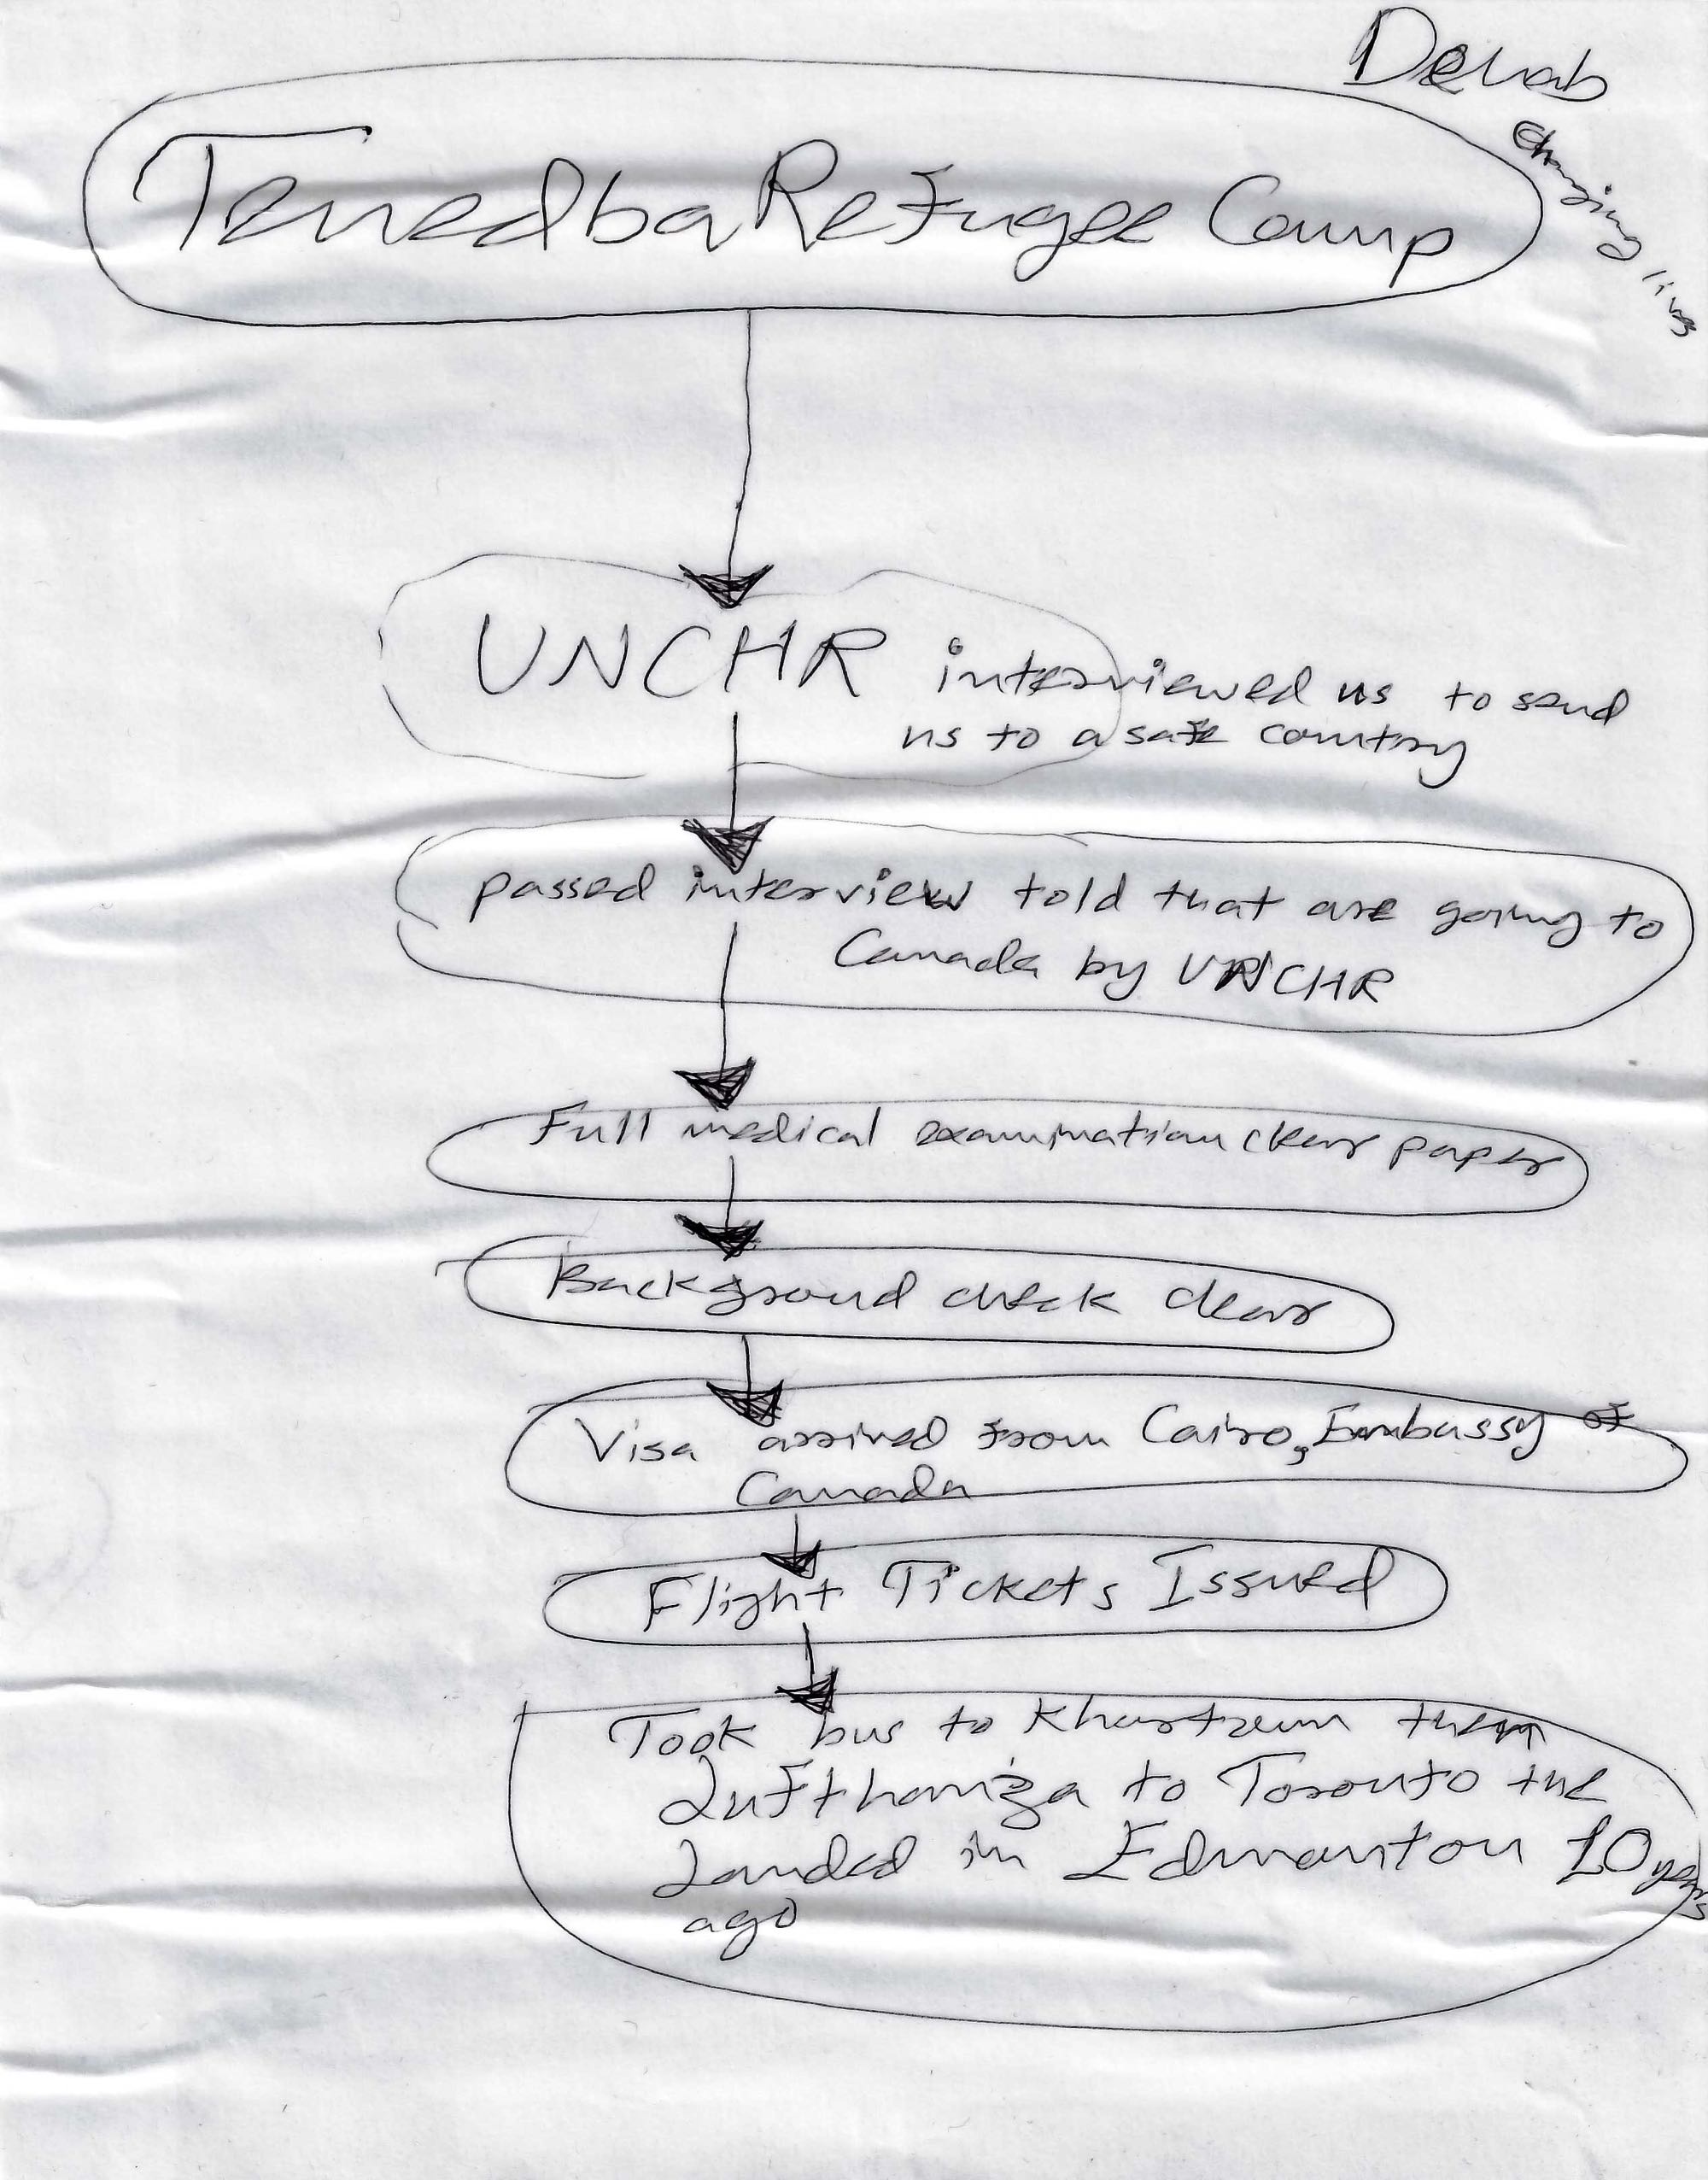 Dehab
Changing lives
Tenedba Refugee Camp
UNCHR interviewed us to send
us to a safe country
passed interview told that are going to
Canada by UNCHR
Full medical examination clear paper
Background check clear
Visa arrived from Cairo, Embassy of
Canada
Flight Tickets Issued
Took bus to Khartzum then
Lufthanza to Toronto the
Landed in Edmonton 10 years
ago